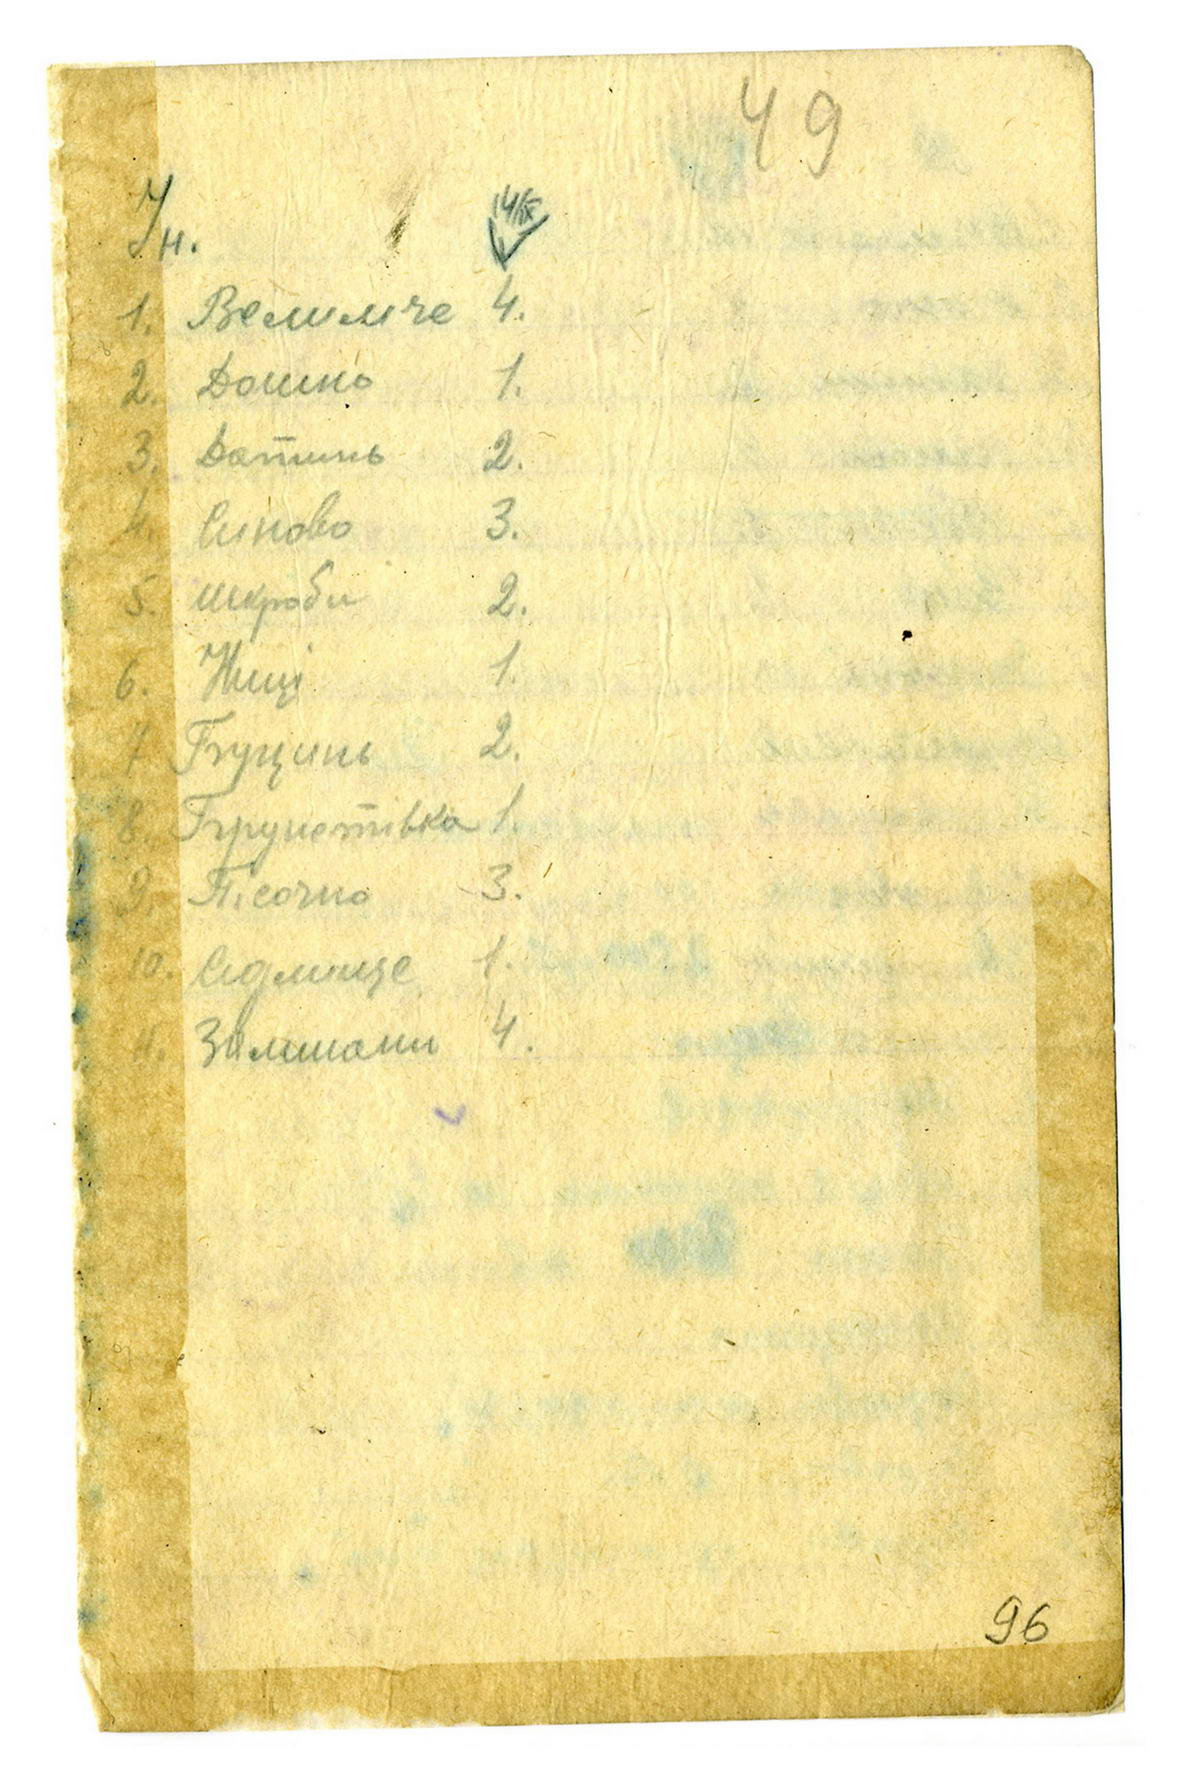 49
Ун.
14/IX
1. Велимче 4.
2. Дошно 1.
3. Датинь 2.
4. Синово 3.
5. Шкроби 2.
6. Нищі 1.
7. Гγщинь 2.
8. 1.
9. Пісочно 3.
10. Сідлище 1.
11. 4.
96